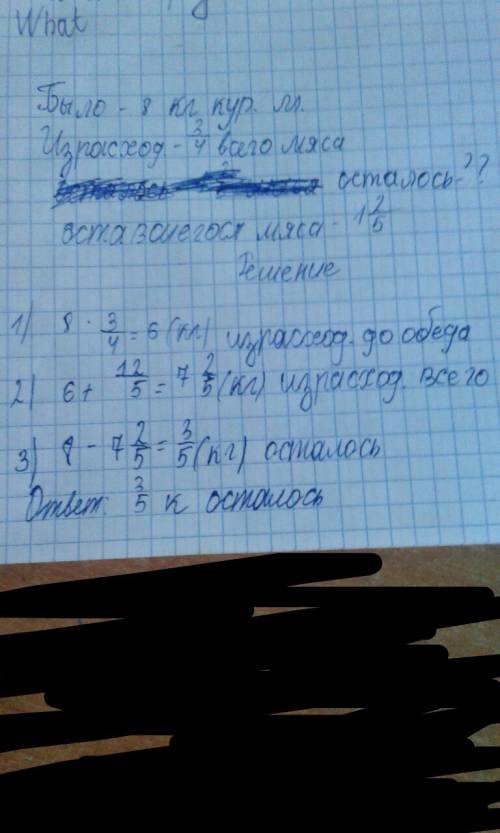 What
Было - 8 кг кур. м.
Израсход - 3/4 всего мяса
осталось-??
оставшегося мяса - 1 2/5
Решение
1) 8 · 3/4 = 6 (кг) израсход. до обеда
2) 6 + 1 2/5 = 7 2/5 (кг) израсход. всего
3) 8 - 7 2/5 = 3/5 (кг) осталось
Ответ: 3/5 к осталось